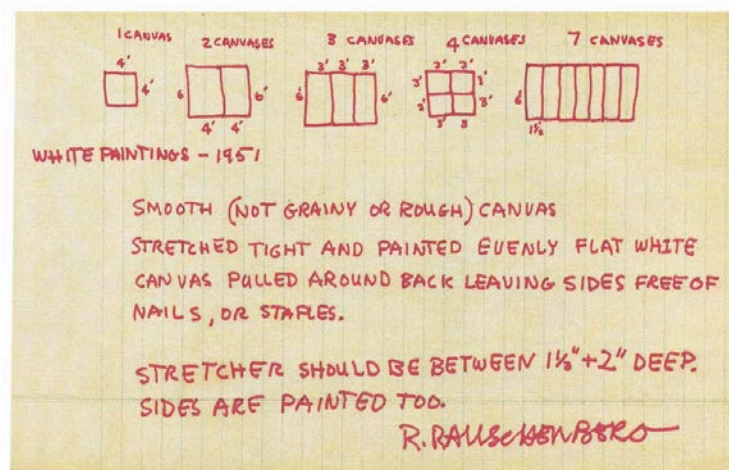 1 CANVAS 2 CANVASES 3 CANVASES 4 CANVASES 7 CANVASES
4' 3' 3' 3' 3' 3'
4' 6 6' 6' 6' 3' 3' 6'
3' 3'
4' 4' 3' 3 1½'
WHITE PAINTINGS - 1951
SMOOTH (NOT GRAINY OR ROUGH) CANVAS
STRETCHED TIGHT AND PAINTED EVENLY FLAT WHITE
CANVAS PULLED AROUND BACK LEAVING SIDES FREE OF
NAILS, OR STAPLES.
STRETCHER SHOULD BE BETWEEN 1½" + 2" DEEP.
SIDES ARE PAINTED TOO.
R. RAUSCHENBERG